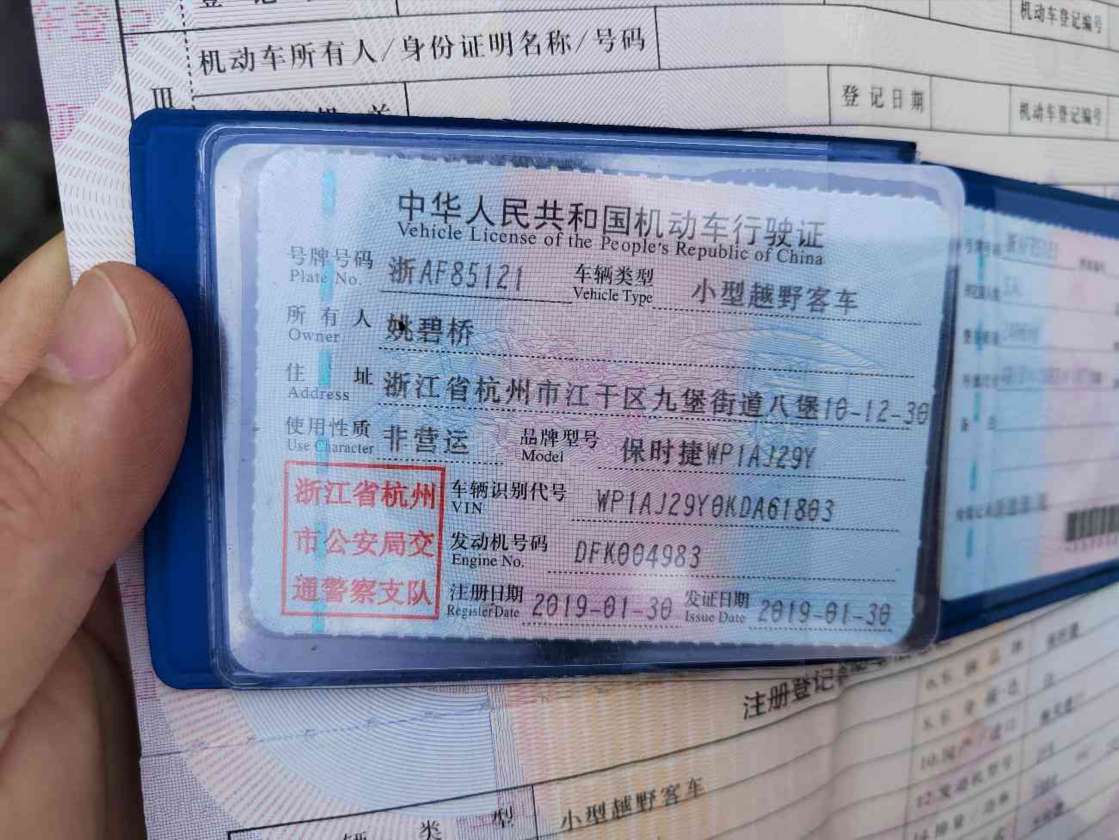 机动车登记编号
机动车所有人/身份证明名称/号码
III
登记日期
机动车登记编号
中华人民共和国机动车行驶证
Vehicle License of the People's Republic of China
号牌号码 浙AF85121 车辆类型 小型越野客车
Plate No. Vehicle Type
所有人 姚碧桥
Owner
住址 浙江省杭州市江干区九堡街道八堡10-12-30
Address
使用性质 非营运 品牌型号 保时捷WP1AJ29Y
Use Character Model
浙江省杭州
市公安局交
通警察支队
车辆识别代号 WP1AJ29Y0KDA61803
VIN
发动机号码 DFK004983
Engine No.
注册日期 2019-01-30 发证日期 2019-01-30
Register Date Issue Date
注册登记
类型 小型越野客车